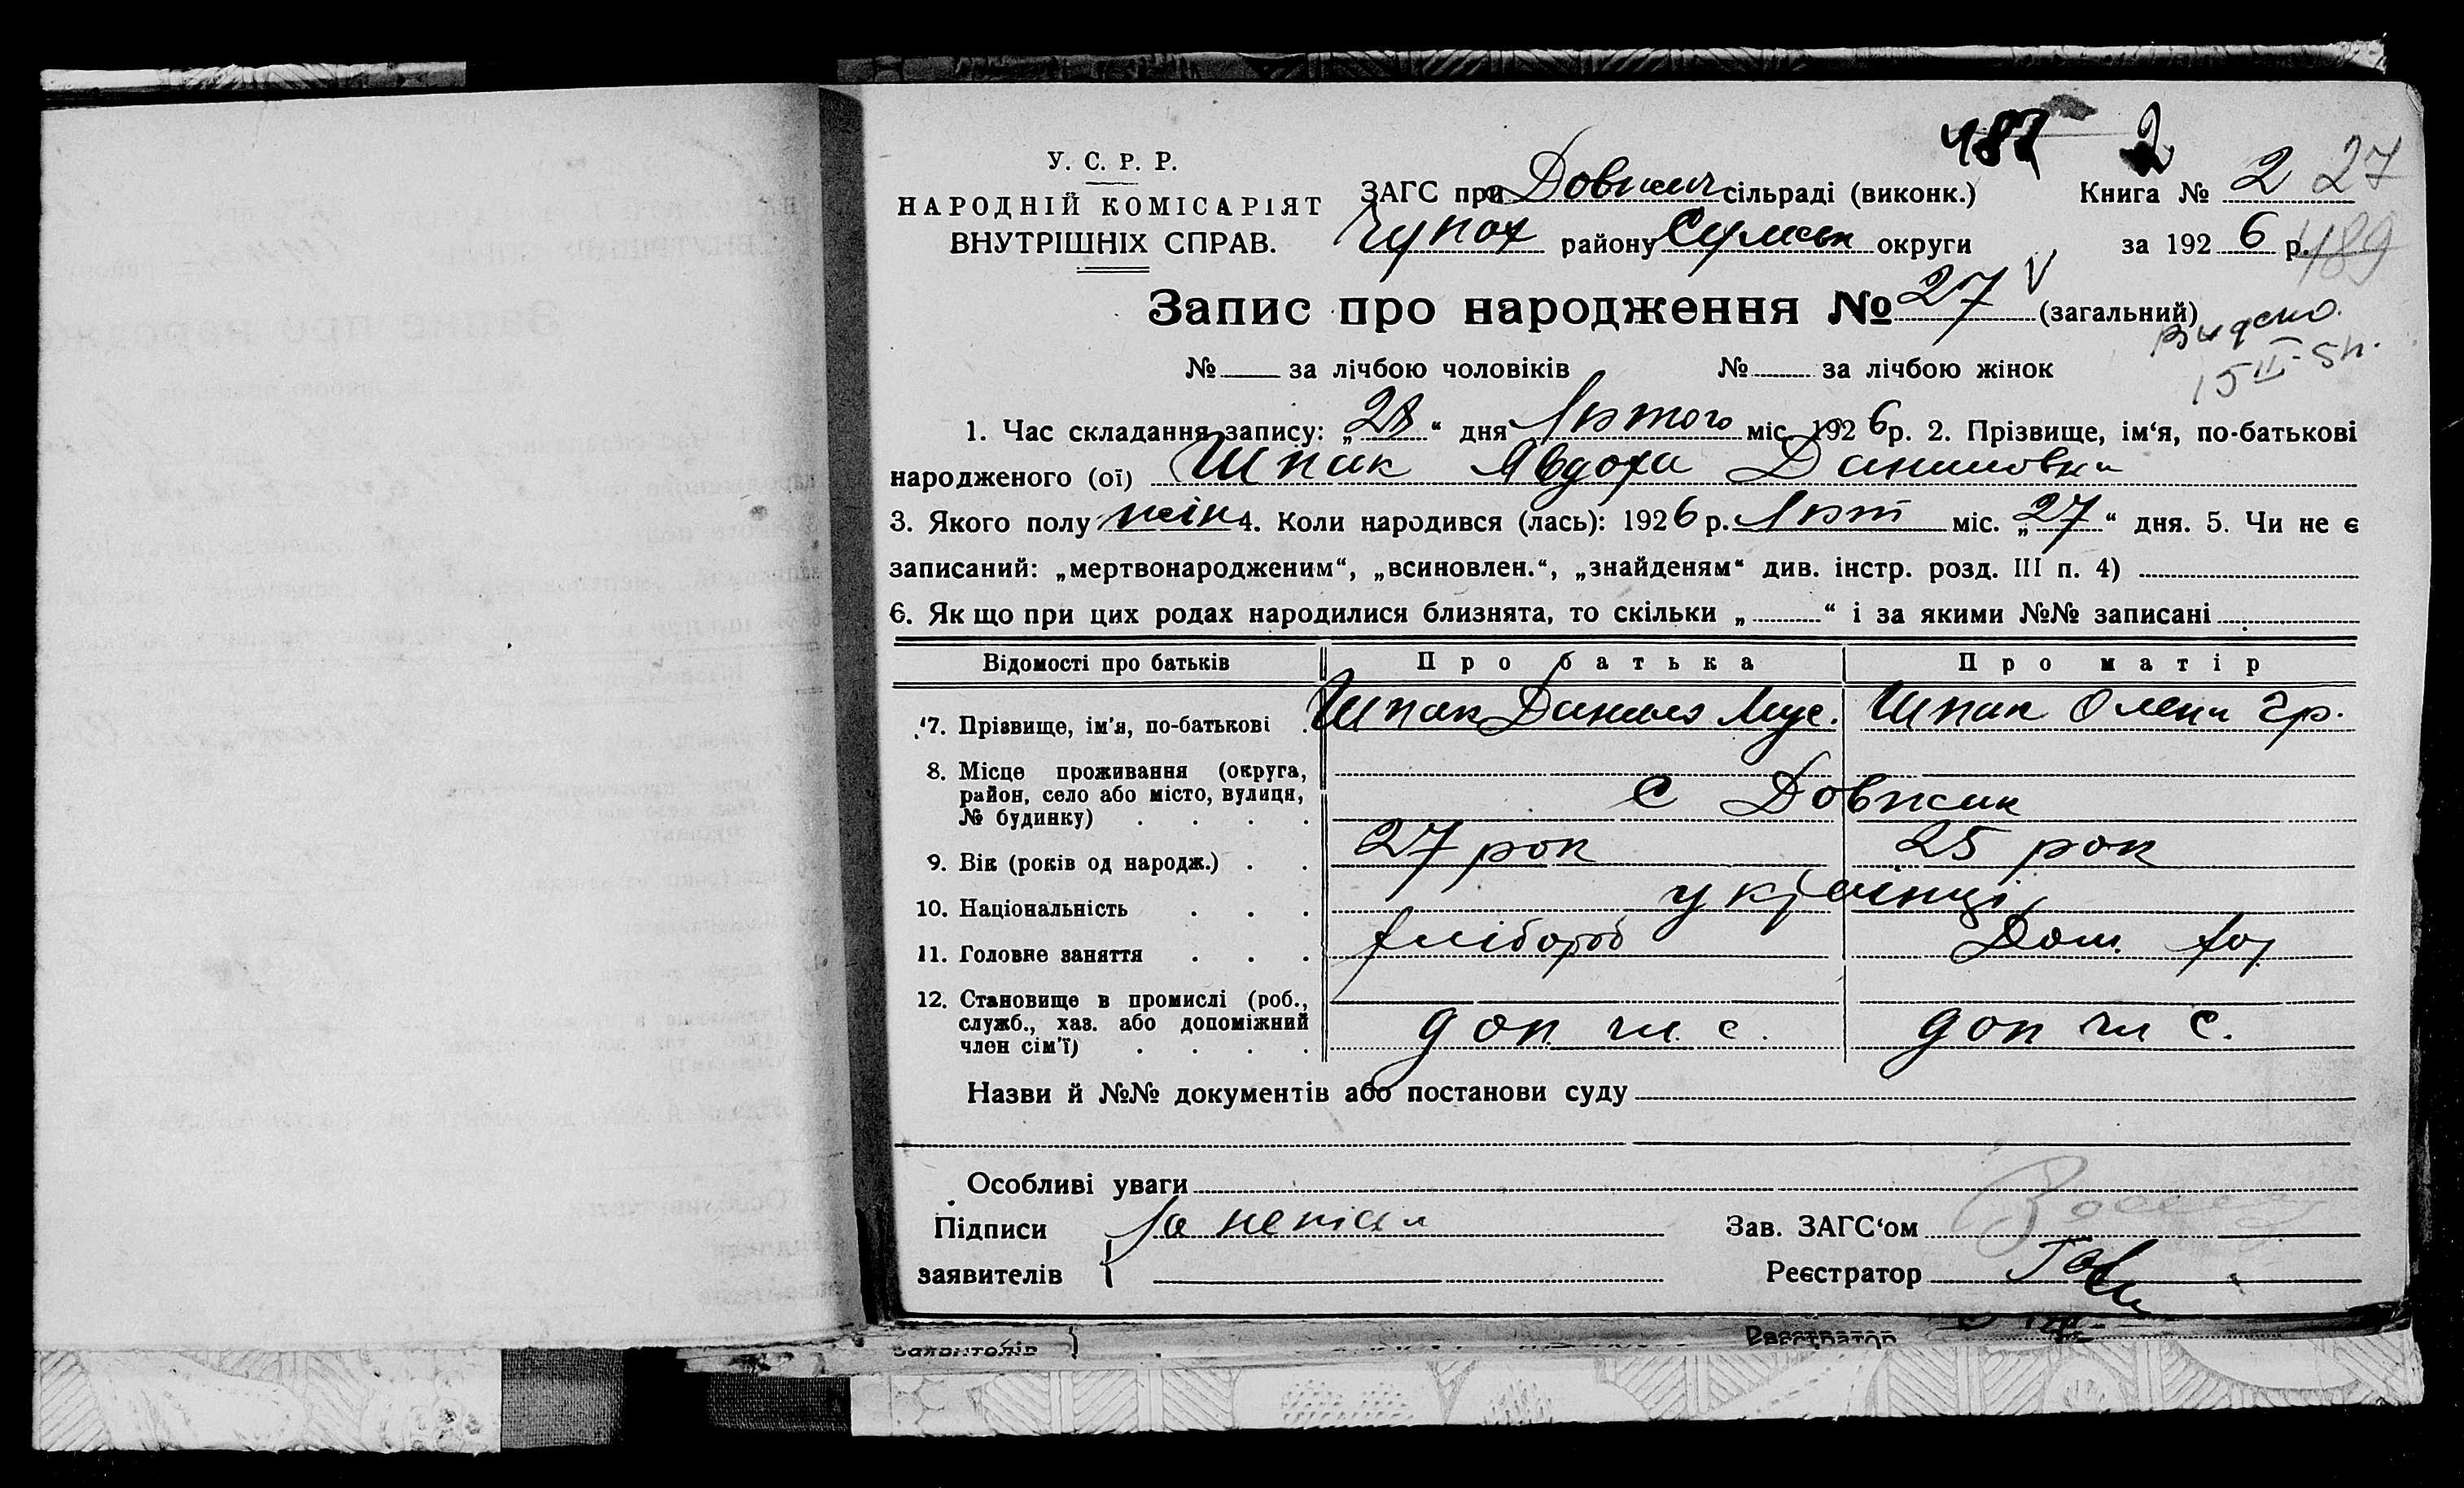 487 2
У. С. Р. Р.
НАРОДНІЙ КОМІСАРІЯТ
ВНУТРІШНІХ СПРАВ.
ЗАГС при Довжич сільраді (виконк.)
Чупах району Сумськ округи
Книга № 2 27
за 1926 р. 489
Запис про народження № 27 V (загальний)
видано
15 II
№ за лічбою чоловіків № за лічбою жінок
1. Час складання запису: „28“ дня Лютого міс. 1926 р. 2. Прізвище, ім‘я, по-батькові
народженого (ої) Шпак Явдоха Даниловна
3. Якого полу жін 4. Коли народився (лась): 1926 р. Лют міс. „27“ дня. 5. Чи не є
записаний: „мертвонародженим“, „всиновлен.“, „знайденям“ див. інстр. розд. III п. 4)
6. Як що при цих родах народилися близнята, то скільки „ “ і за якими №№ записані
Відомості про батьків Про батька Про матір
7. Прізвище, ім‘я, по-батькові . Шпак Данило Мус. Шпак Олена Гр.
8. Місце проживання (округа,
район, село або місто, вулиця,
№ будинку) . . . . с Довжик
9. Вік (років од народж.) . . 27 рок 25 рок
10. Національність . . . українці
11. Головне заняття . . . хлібороб Дом. хоз
12. Становище в промислі (роб.,
служб., хаз. або допоміжний
член сім‘ї) . . . . доп чл. с. доп чл с.
Назви й №№ документів або постанови суду
Особливі уваги
Підписи
заявителів
Зав. ЗАГС‘ом
Реєстратор
заявителів
Реєстратор